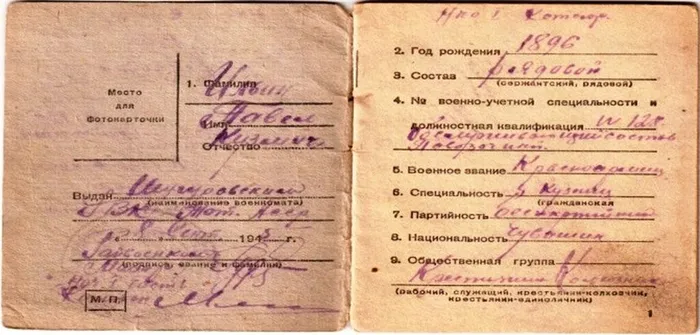 Место
для
фотокарточки
1. Фамилия Ильин
Имя Павел
Отчество Кузмич
Выдан
(наименование военкомата)
РВК Тат. АССР
8 Сент 1945 г.
(подпись, звание и фамилия)
М. П.
2. Год рождения 1896
3. Состав рядовой
(сержантский, рядовой)
4. № военно-учетной специальности и
должностная квалификация № 128
Обслуживающий состав
5. Военное звание Красноармеец
6. Специальность Кузнец
(гражданская
7. Партийность беспартийный
8. Национальность Чувашин
9. Общественная группа
Крестьянин Колхозник
(рабочий, служащий, крестьянин-колхозник,
крестьянин-единоличник)
1